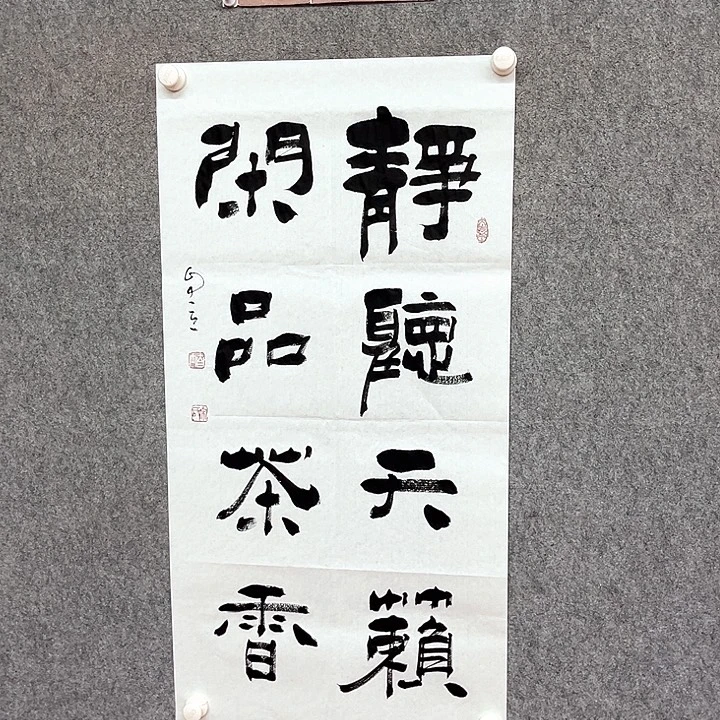 靜聽天籟
閑品茶香